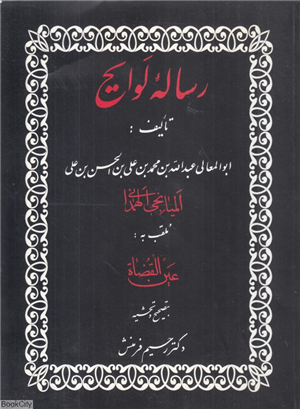 رسالهٔ لوایح
تألیف :
ابوالمعالی عبدالله بن محمد بن علی بن الحسن بن علی
المیانجی الهمدانی
ملقب به :
عین القضاة
بتصحیح و تحشیه
دکتر رحیم فرمنش
BookCity